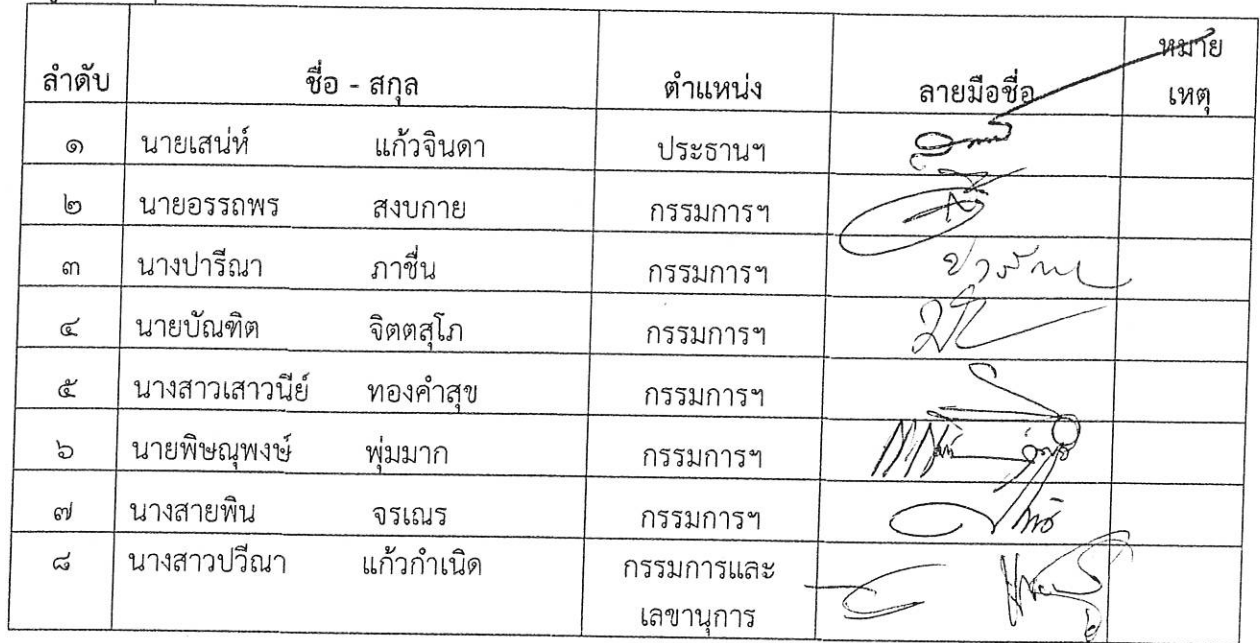 ลำดับ ชื่อ - สกุล ตำแหน่ง ลายมือชื่อ หมาย
เหตุ
๑ นายเสน่ห์ แก้วจินดา ประธานฯ
๒ นายอรรถพร สงบกาย กรรมการฯ
๓ นางปารีณา ภาชื่น กรรมการฯ
๔ นายบัณฑิต จิตตสุโภ กรรมการฯ
๕ นางสาวเสาวนีย์ ทองคำสุข กรรมการฯ
๖ นายพิษณุพงษ์ พุ่มมาก กรรมการฯ
๗ นางสายพิน จรเณร กรรมการฯ
๘ นางสาวปวีณา แก้วกำเนิด กรรมการและ
เลขานุการ